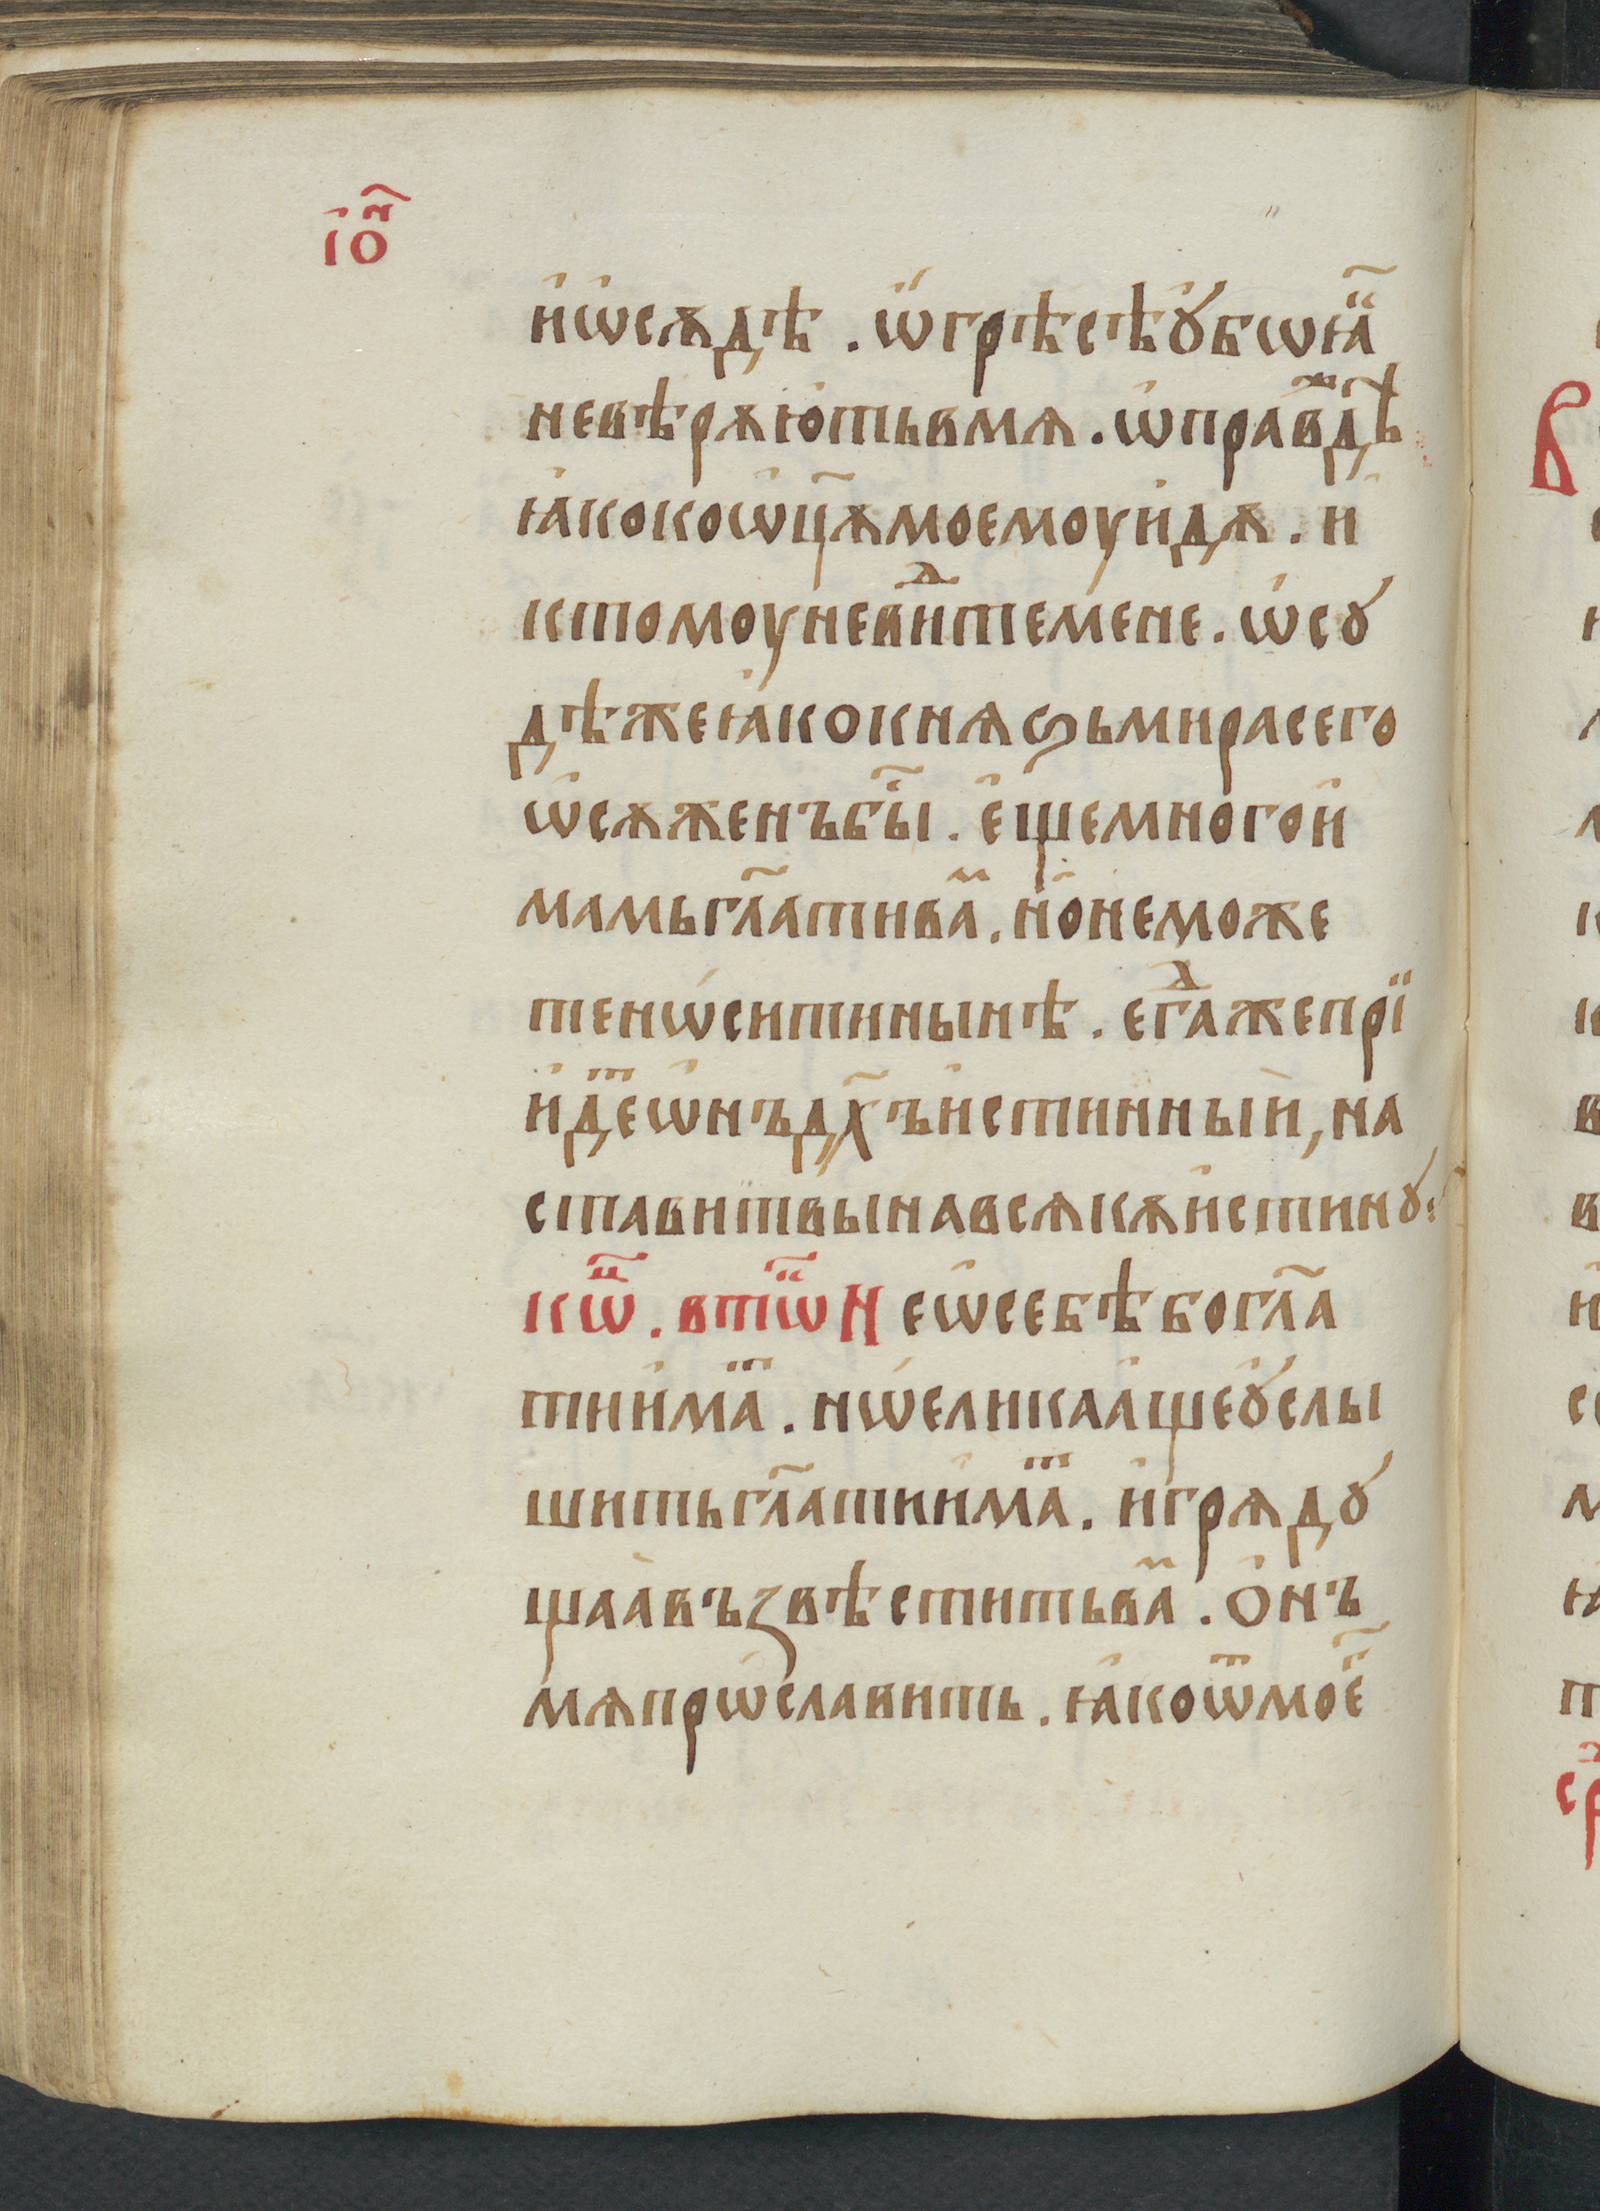 іѡ҃
и҆ѡ҆сѫдѣ . ѡ҆грѣсѣꙋ҆бѡꙗ҃
невѣрѫю҆тьвмѧ . ѡ҆прав҃дѣ
ꙗ҆кокоѡ҆ц҃ѫмоемоуи҆дѫ . и҆
ктомоуневи́ⷣтемене . ѡ҆сꙋ
дѣжеꙗ҆кокнѧꙃьмирасего
ѡ҆сѫженъбы҃ . е҆щемногои҆
мамьгл҃ативаⷨ . но҆неможе
тенѡ҆ситинынѣ . егⷣажепрїи
и҆деⷮѡ҆нъдх҃ъи҆стинный, на
ставитвынавсѧкѫи҆стинꙋ:
кѡⷰ҇ . втоⷬ҇ Не ѡ҆себѣбогл҃а
тии҆маⷮ . нѡ҆еликаа҆щеꙋ҆слы
шитьгл҃атии҆маⷮ . и҆грѧдꙋ
щаа҆въꙁвѣститьваⷨ . О҆нъ
мѧпрѡ҆славить . ꙗ҆коѿмое҃